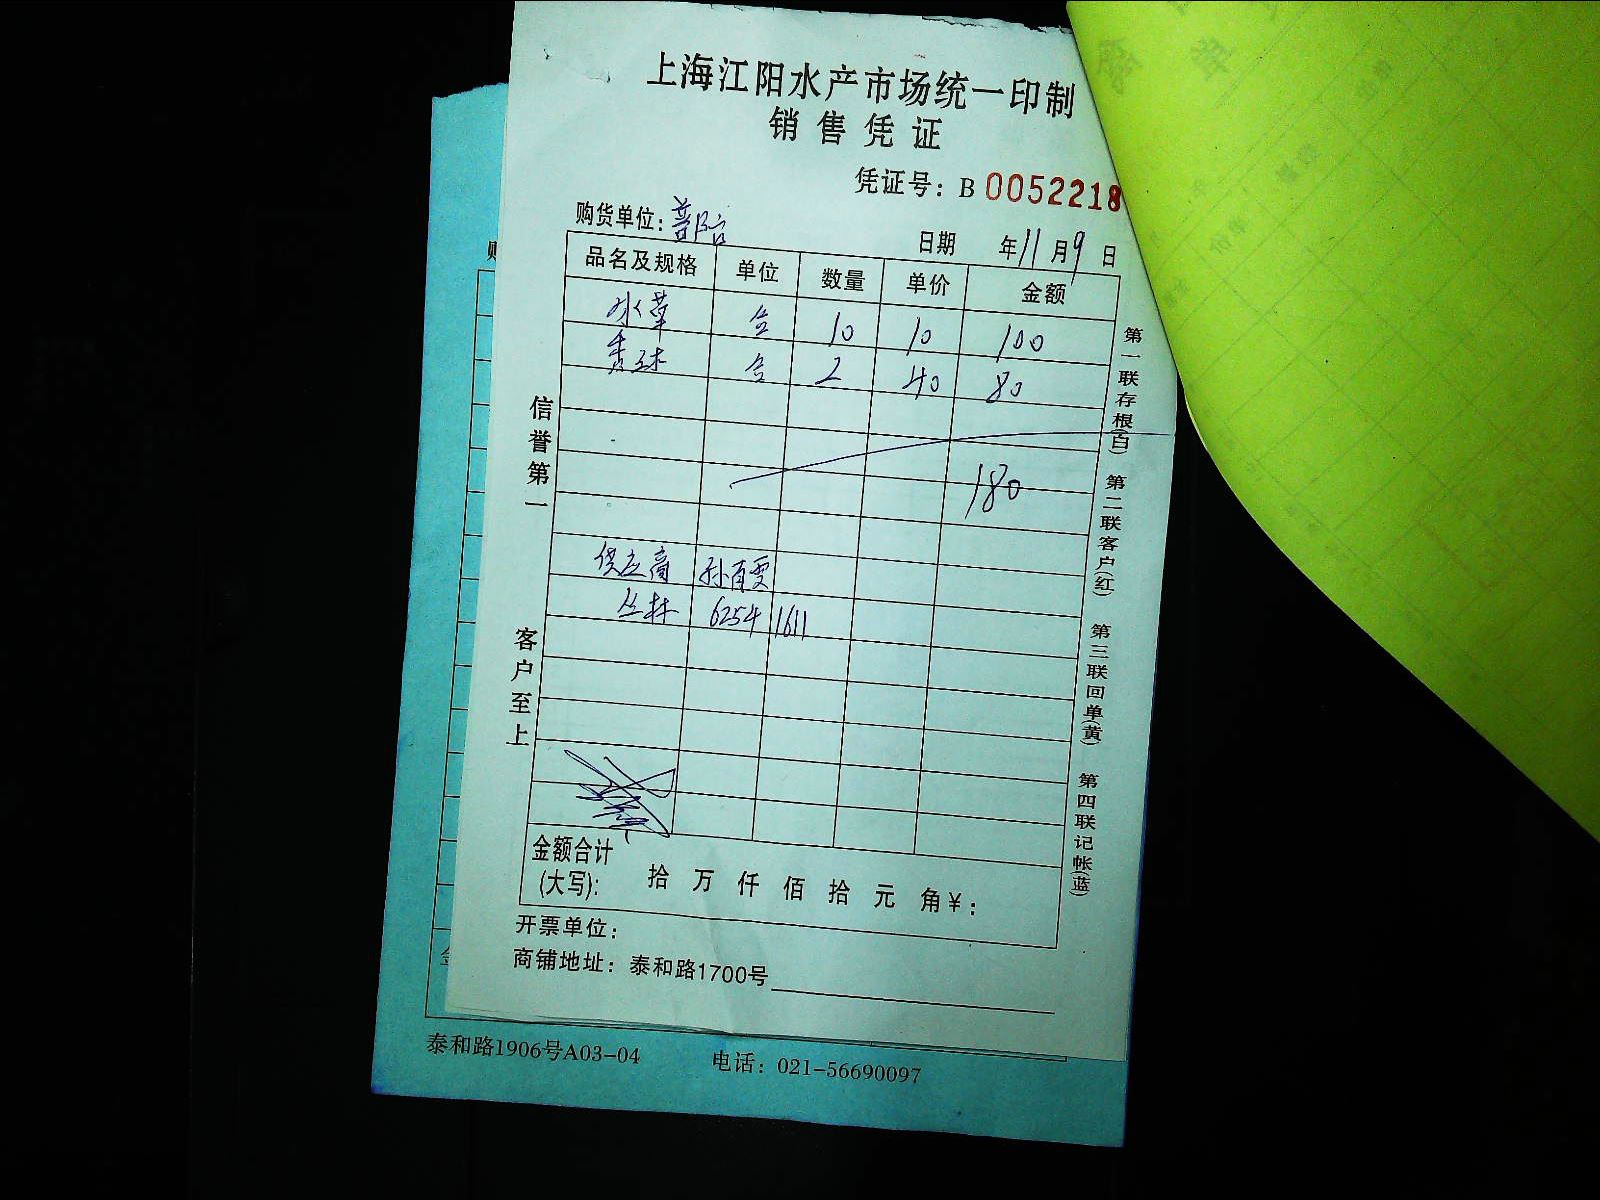 上海江阳水产市场统一印制
销售凭证
凭证号：B 0052218
购货单位：普陀
日期 年11月9日
品名及规格 单位 数量 单价 金额
水 合 10 10 100
合 2 40 80
180
供应商 孙百雯
丛林 6254 1611
信誉第一
客户至上
第一联存根(白) 第二联客户(红) 第三联回单(黄) 第四联记帐(蓝)
金额合计
(大写)： 拾 万 仟 佰 拾 元 角¥：
开票单位：
商铺地址：泰和路1700号
泰和路1906号A03-04 电话：021-56690097